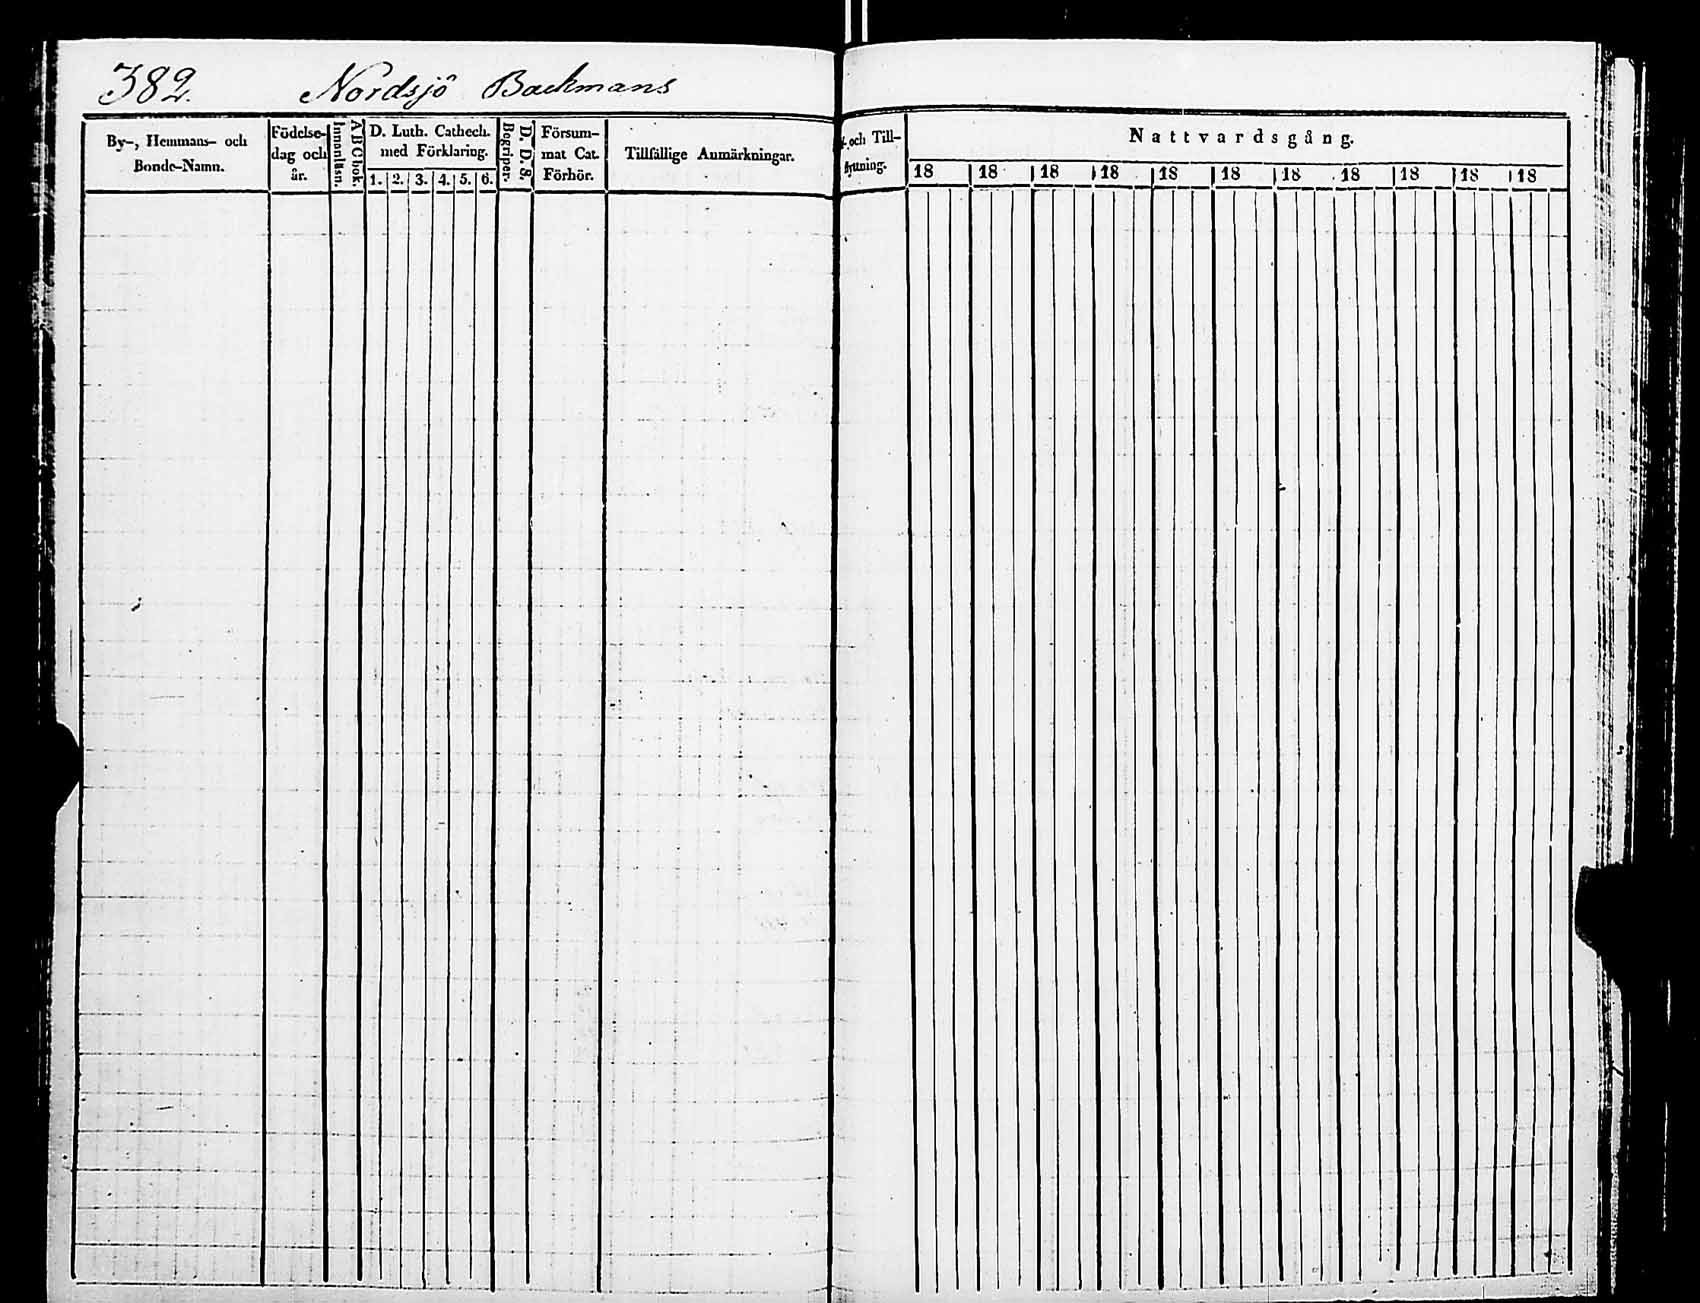 382. Nordsjö Backmans
By-, Hemmans- och
Bonde-Namn.
Födelse-
dag och
år.
Innanläsn.
ABCbok.
D. Luth. Cathech.
med Förklaring.
1. 2. 3. 4. 5. 6.
Begriper.
D. D. S.
Försum-
mat Cat.
Förhör.
Tillfällige Anmärkningar.
och Till-
flyttning.
Nattvardsgång.
18 18 18 18 18 18 18 18 18 18 18